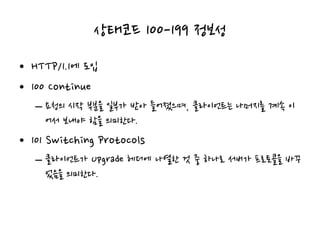 상태코드 100-199 정보성
• HTTP/1.1에 도입
• 100 Continue
– 요청의 시작 부분을 일부가 받아 들여졌으며, 클라이언트는 나머지를 계속 이
어서 보내야 함을 의미한다.
• 101 Switching Protocols
– 클라이언트가 Upgrade 헤더에 나열한 것 중 하나로 서버가 프로토콜을 바꾸
었음을 의미한다.